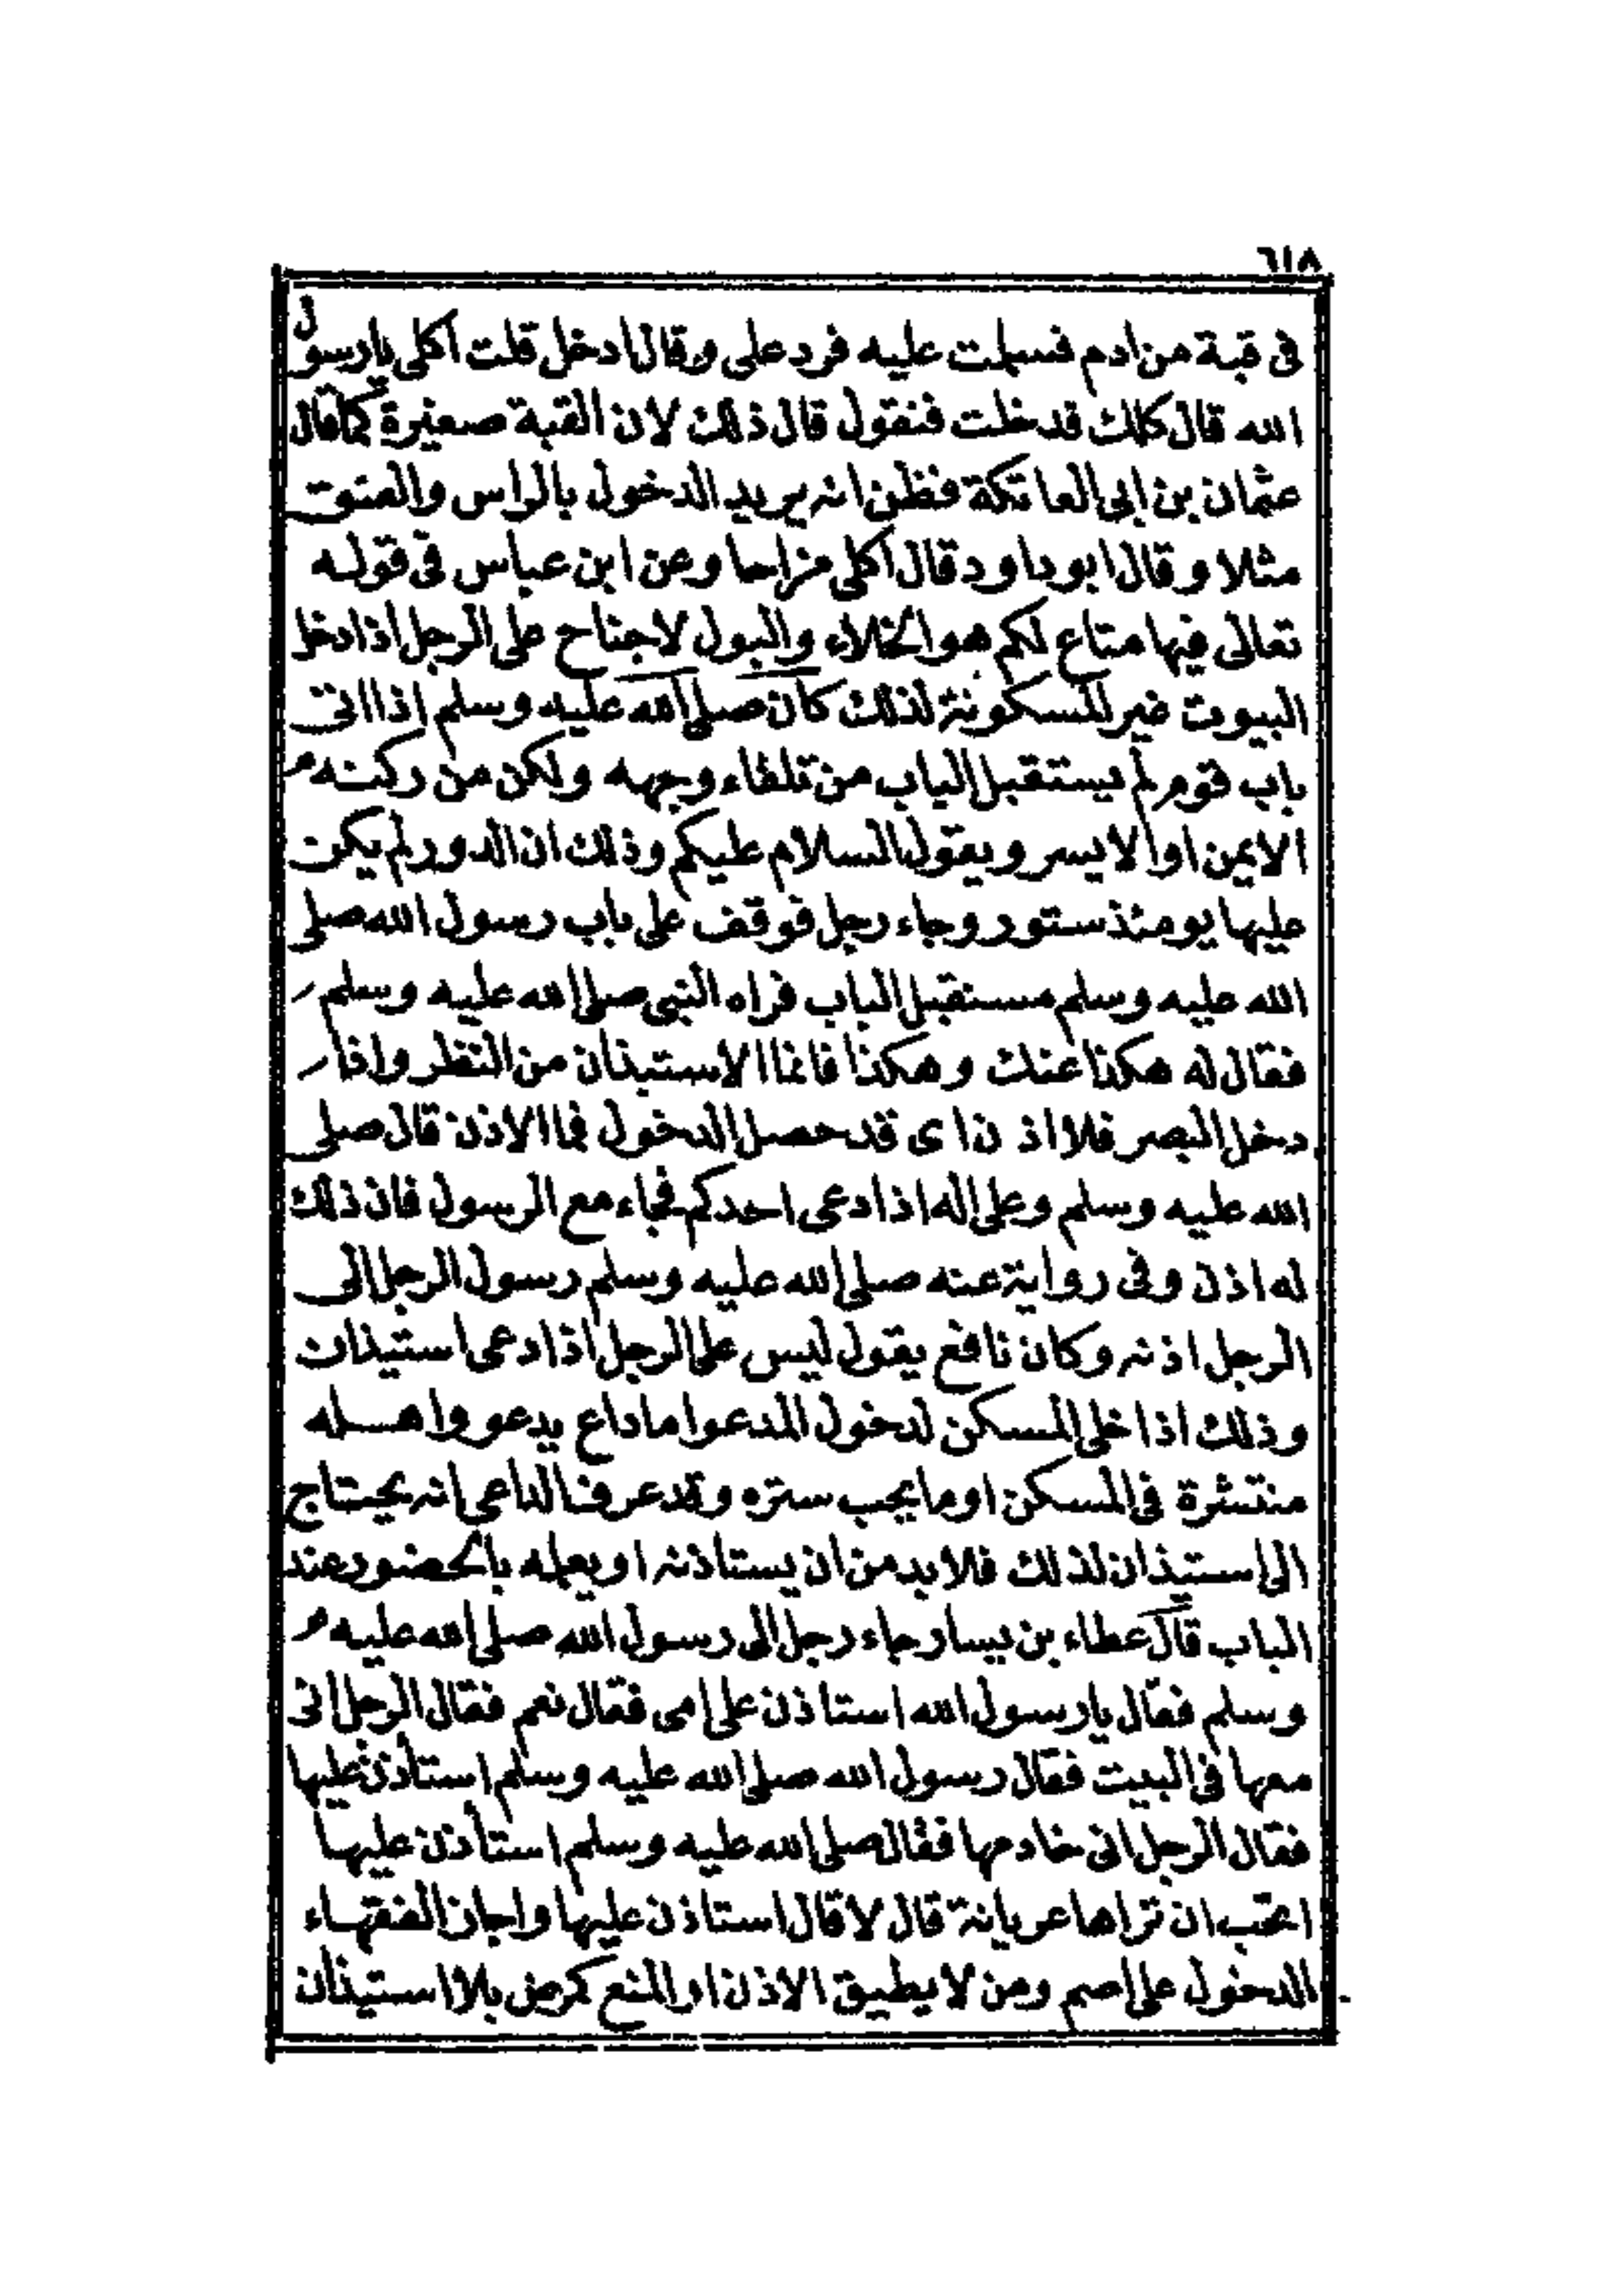 ٦١٨
فى قبة من ادم فسلمت عليه فرد على وقال ادخل قلت اكلى يارسول
الله قال كلك قدخلت فنقول قال ذلك لان القبة صغيرة كما قال
عثمان بن ابى العاتكة فظن انه يريد الدخول بالراس والصوت
مثلا وقال ابو داود قال اكلى مزاحا وعن ابن عباس فى قوله
تعالى فيها متاع لكم هو الخلاء والبول لاجناح على الرجل اذا دخل
البيوت غير المسكونة لذلك كان صلى الله عليه وسلم اذا اتى
باب قوم لم يستقبل الباب من تلقاء وجهه ولكن من ركنه
الايمن او الايسر ويقول السلام عليكم وذلك ان الدور لم يكن
عليها يومئذ ستور وجاء رجل فوقف على باب رسول الله صلى
الله عليه وسلم مستقبل الباب فراه النبى صلى الله عليه وسلم
فقال له هكذا عنك وهكذا فانما الاستيذان من النظر واذا
دخل البصر فلا اذن اى قد حصل الدخول فما الاذن قال صلى
الله عليه وسلم وعلى اله اذا دعى احدكم فجاء مع الرسول فان ذلك
له اذن وفى رواية عنه صلى الله عليه وسلم رسول الرجل الى
الرجل اذنه وكان نافع يقول ليس على الرجل اذا دعى استيذان
وذلك اذا خلى المسكن لدخول المدعوا ما داع يدعو واهله
منتشرة فى المسكن او ما يجب ستره وقد عرف الداعى انه يحتاج
الى استيذان لذلك فلا بد من ان يستاذنه او يعلمه بالحضور عند
الباب قال عطاء بن يسار جاء رجل الى رسول الله صلى الله عليه
وسلم فقال يا رسول الله استاذن على امى فقال نعم فقال الرجل انى
معها فى البيت فقال رسول الله صلى الله عليه وسلم استأذن عليها
فقال الرجل انى خادمها فقال صلى الله عليه وسلم استأذن عليها
اتحب ان تراها عريانة قال لا قال استاذن عليها واجاز الفقهاء
الدخول على اصم ومن لا يطيق الاذن او المنع كمرض بلا استيذان